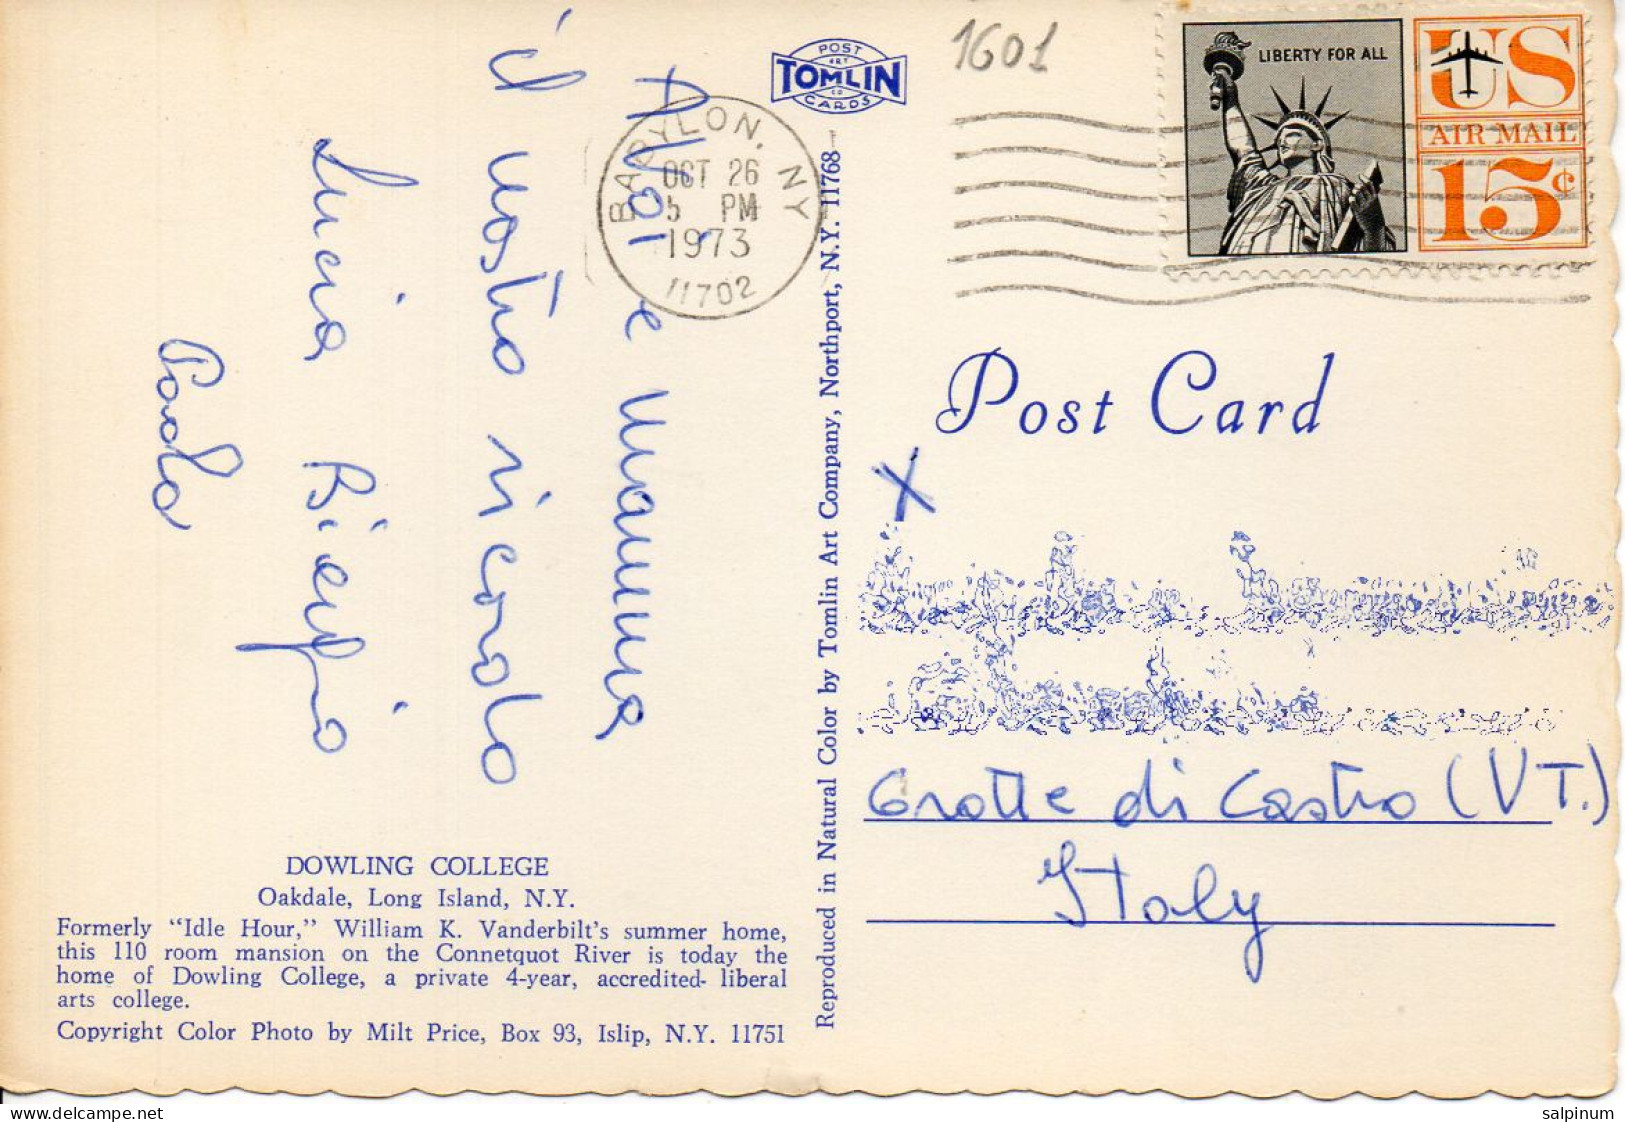 A Voi e mamma
il nostro ricordo
Lucia Biagio
Paola
DOWLING COLLEGE
Oakdale, Long Island, N.Y.
Formerly “Idle Hour,” William K. Vanderbilt's summer home,
this 110 room mansion on the Connetquot River is today the
home of Dowling College, a private 4-year, accredited- liberal
arts college.
Copyright Color Photo by Milt Price, Box 93, Islip, N.Y. 11751
POST
ART
TOMLIN
CO
CARDS
Reproduced in Natural Color by Tomlin Art Company, Northport, N.Y. 11768
BABYLON, NY
OCT 26
5 PM
1973
11702
1601
LIBERTY FOR ALL
US
AIR MAIL
15¢
Post Card
X
Grotte di Castro (VT.)
Italy
salpinum
delcampe.net